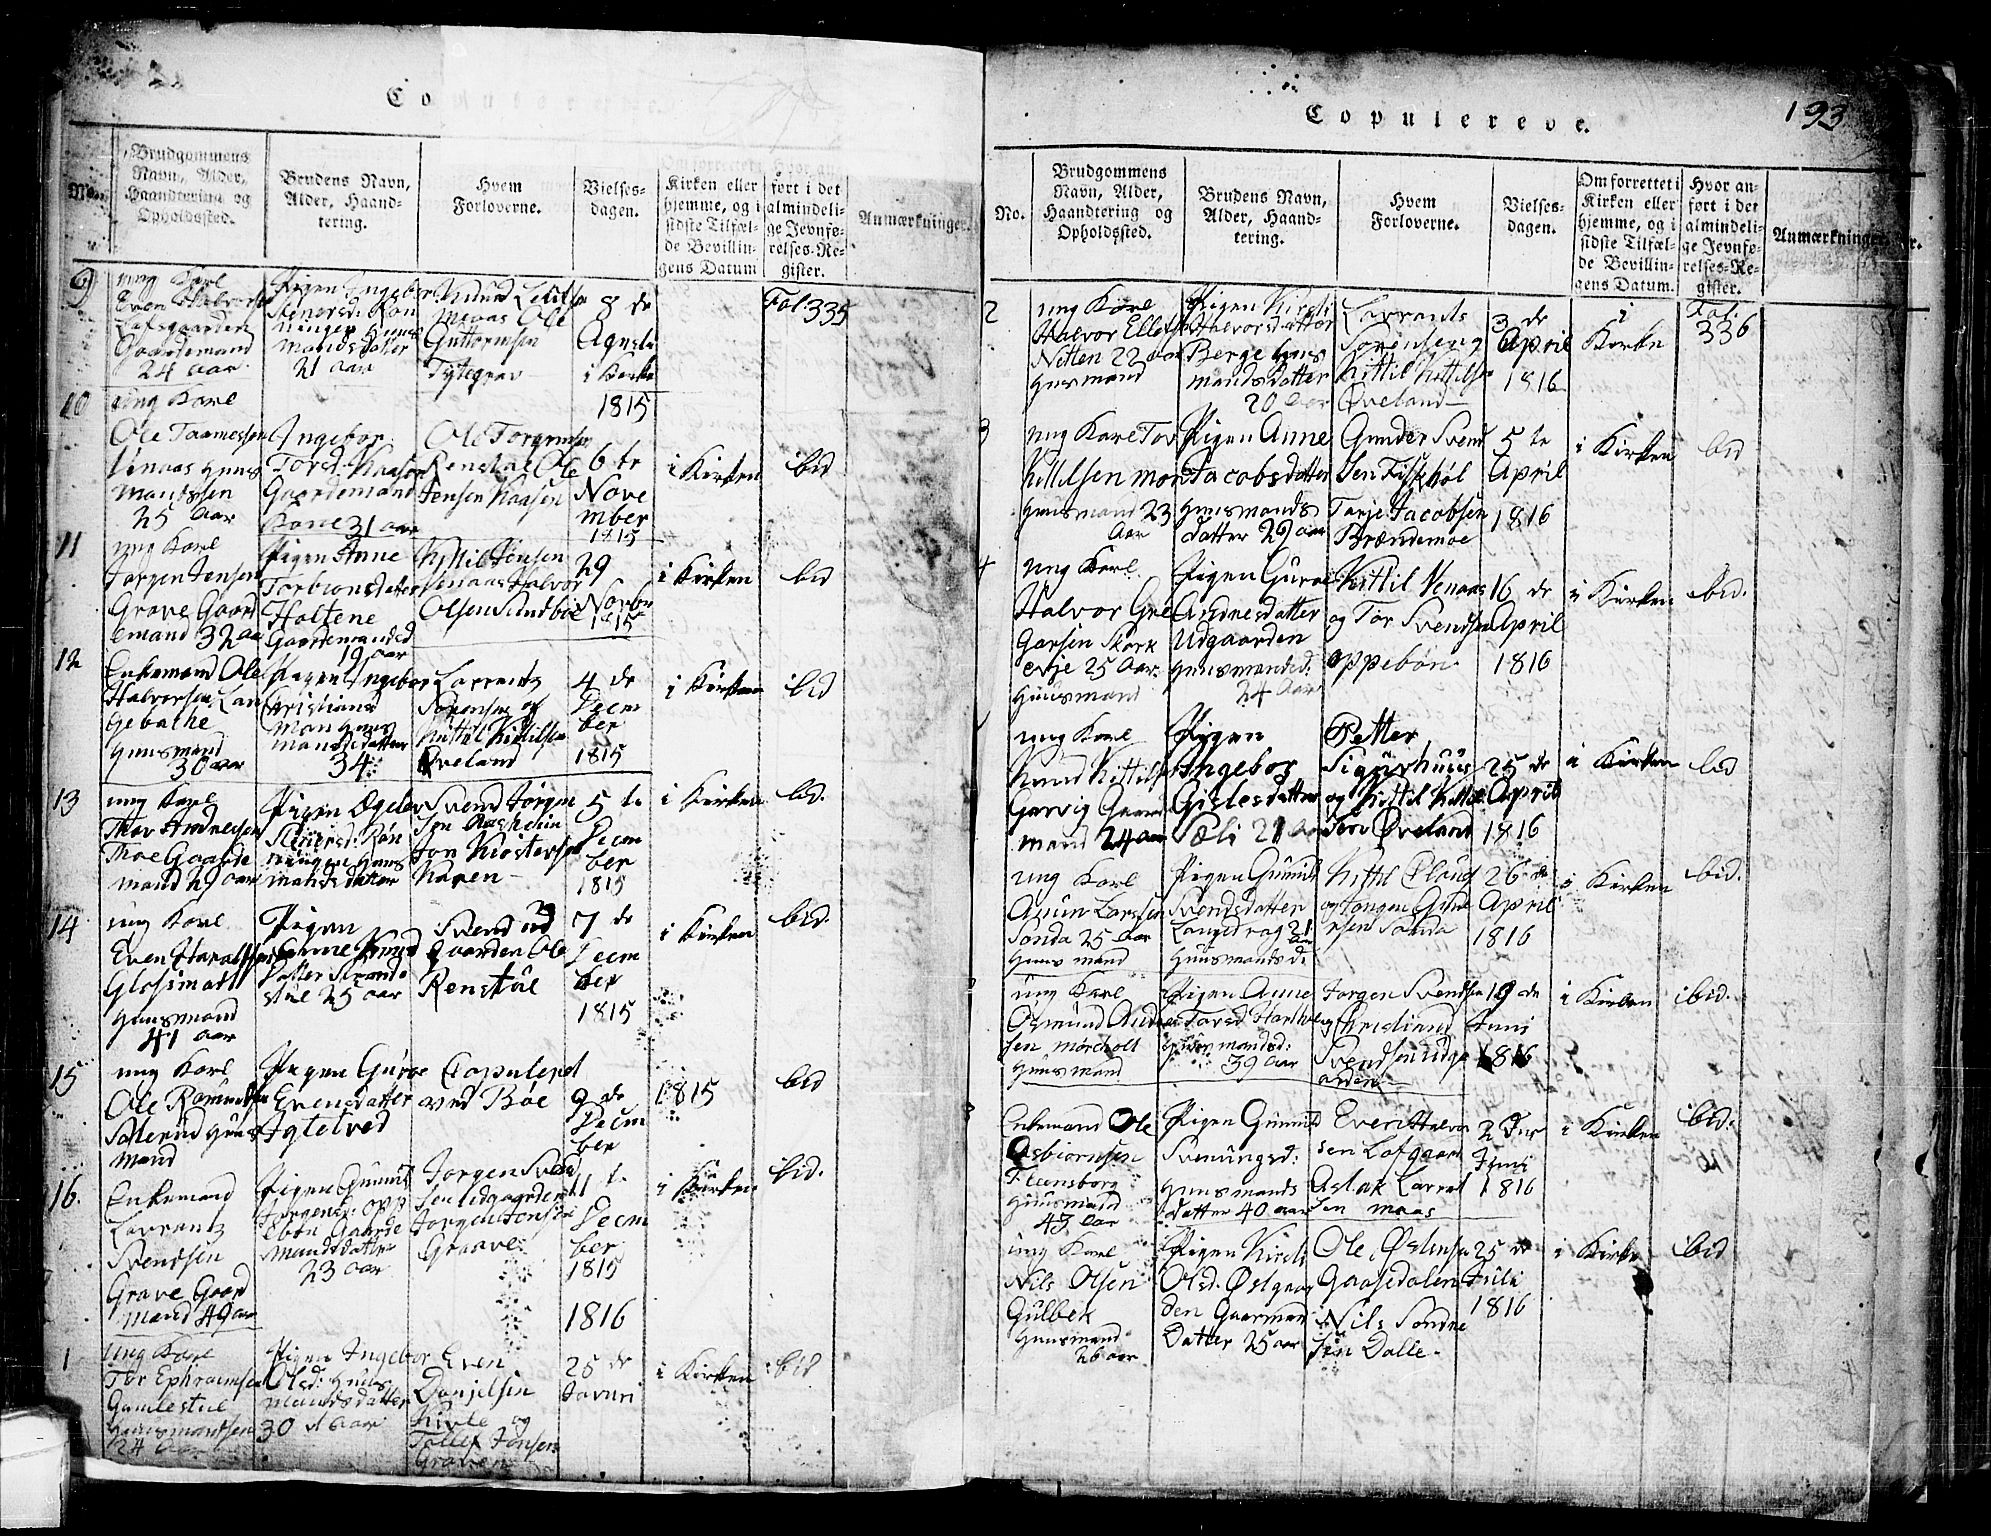 Copulereve.
No.
Brudgommens
Navn, Alder,
Haandtering og
Opholdssted.
Brudens Navn,
Alder, Haand-
tering.
Hvem
Forloverne.
Vielses-
dagen.
Om forrettet i
Kirken eller
hjemme, og i
sidste Tilfæl-
de Bevillin-
gens Datum
Hvor an-
ført i det
almindeli-
ge Jevnfø-
relses-Re-
gister.
Anmærkninger.
9
ung Karl
Even Halvorsen
Lofsgaarden
Gaardemand
24 aar
Pigen Ingebor
Stenersd: Røn
ningen Huus
mands datter
21 aar
Ole
Guttormsen
Tytegrav
8 de
Agusti
i Kirke
1815
Fol. 335
10
ung Karl
Ole Taamessen
Venaas Huus
25 Aar
Ingebor
Gaardemand
Kone 31 aar
Ole Torgrimsen
Renstøe Ole
Jensen Kaasen
6 te
Nove
mber
1815
i Kirken
ibid
11
ung Karl
Jørgen Jensen
Grave Gaard
emand 32 aar
Pigen Anne
Torbionsdatter
Holtene
Gaardemandsd
19 aar
Kittil Jensen
Venaas Halvor
Olsen Sundbøe
29
Novbr
1815
i Kirken
ibid
12
Enkemand Ole
Halvorsen Lan
gebache
Huusmand
30 aar
Pigen Ingebor
Christians
Moen Huus
mandsdatter
34
Lavrants
Sørensen og
Kittil Kittilsen
Øveland
4 de
Decem
ber
1815
i Kirken
ibid
13
ung Karl
Thor Andresen
Thoe Gaarde
mand 29 aar
Pigen
Stenersd: Røn
ningen Huus
mands datter
Svend Jørgen
sen Aasheim
Jon Kiostersen
Haven
5 te
Decem
ber
1815
i Kirken
ibid.
14
ung Karl
Even Haralsen
Glosimott
Huusmand
41 aar
Pigen
Anne Knud
datter Strand
støe 25 aar
Svend ud
gaarden Ole
Renstøe
7 de
Decem
ber
1815
i Kirken
ibid.
15
ung Karl
Ole Romundsen
Solerud Huus
mand
Pigen Gurve
Evensdatter
Igtelved
Copulered
ved Bøe
9 de
Decem
ber
1815
ibid
16
Enkemand
Lavrantz
Svendsen
Grave Gaard
mand 49 aar
Pigen Gunnild
Jørgensd: Opp
ebøn Gaarde
mandsdatter
23 aar
Jørgen Svend
sen Udgaarden
Jørgen Jensen
Graave
11 te
Decem
ber
1815
i Kirken
ibid.
1816
1
ung Karl
Tor Ephraimsen
Gamlestue
Huusmandsen
24 Aar
Pigen Ingebor
Olsd: Huus
mandsdatter
30 Aar
Even
Danjelsen
Kivle og
Tollef Jensen
Graven
25 de
Januri
i Kirken
ibid
Copulereve.
193
No.
Brudgommens
Navn, Alder,
Haandtering og
Opholdssted.
Brudens Navn,
Alder, Haand-
tering.
Hvem
Forloverne.
Vielses-
dagen.
Om forrettet i
Kirken eller
hjemme, og i
sidste Tilfæl-
de Bevillin-
gens Datum.
Hvor an-
ført i det
almindeli-
ge Jevnfø-
relses-Re-
gister.
Anmærkninger.
2
ung Karl
Halvor Ellefsen
Netten 22 aar
Huusmand
Pigen Kirsti
Halvorsdatter
Berge Huus
mandsdatter
20 aar
Lavrants
Sørenseng
Kittil Kittilsen
Øveland
3 de
April
1816
i
Kirke
Fol.
336
3
ung Karl Tov
Kittilsen
Huusmand 23
Aar
Pigen Anne
Jacobsdatter
Huusmands
datter 29 aar
Gunder Svend
sen Fiskhøl
Torje Jacobsen
Brændemoe
5 te
April
1816
i Kirken
ibid
4
ung Karl
Halvor Gre
gorsen Skark
evje 25 Aar
Huusmand
Pigen Gurve
Andresdatter
Udgaarden
Huusmandsd:
24 Aar
Kittil Venaas
og Tor Svendsen
Oppebøn
16 de
April
1816
i Kirken
ibid.
ung Karl
Knud Kittilsen
Garvig Gaard
mand 24 aar
Pigen
Ingebor
Gislesdatter
Sæli 21 Aar
Petter
Sigurhuus
og Kittil Kittil
sen Øveland
25 de
April
1816
i Kirken
ibid
ung Karl
Aaun Larssen
Sonda 25 aar
Huusmand
Pigen Gunnild
Svendsdatter
Langedrag 21
aar
Huusmandsd:
Kittil
og Jørgen
rsen Sonda
26 de
April
1816
i Kirken
ibid.
ung Karl
Osmund Andre
sen Morcholt
Huusmand
Pigen Anne
Torsd
Huusmandsd:
39 aar
Jørgen Svendsen
og Christiand
Svendsen Udga
arden
19 de
Juni
1816
i Kirken
ibid.
Enkemand Ole
Asbiørnsen
Fleensborg
Huusmand
43 aar
Pigen Gunnild
Svenungsd:
Huusmands
datter 40 aar
Even Halvor
sen Lofgaar
Aslak Larent
sen Moas
Juni
1816
i Kirken
ibid.
ung Karl
Nils Olsen
Gulbek
Huusmand
26 aar
Pigen Kirsti
Olsd. Østgaar
den Gaarman
datter 25 aar
Ole Østensen
Gaasedalen
Nils Sondre
sen Dalle
25 de
Juli
1816
i Kirke
ibid